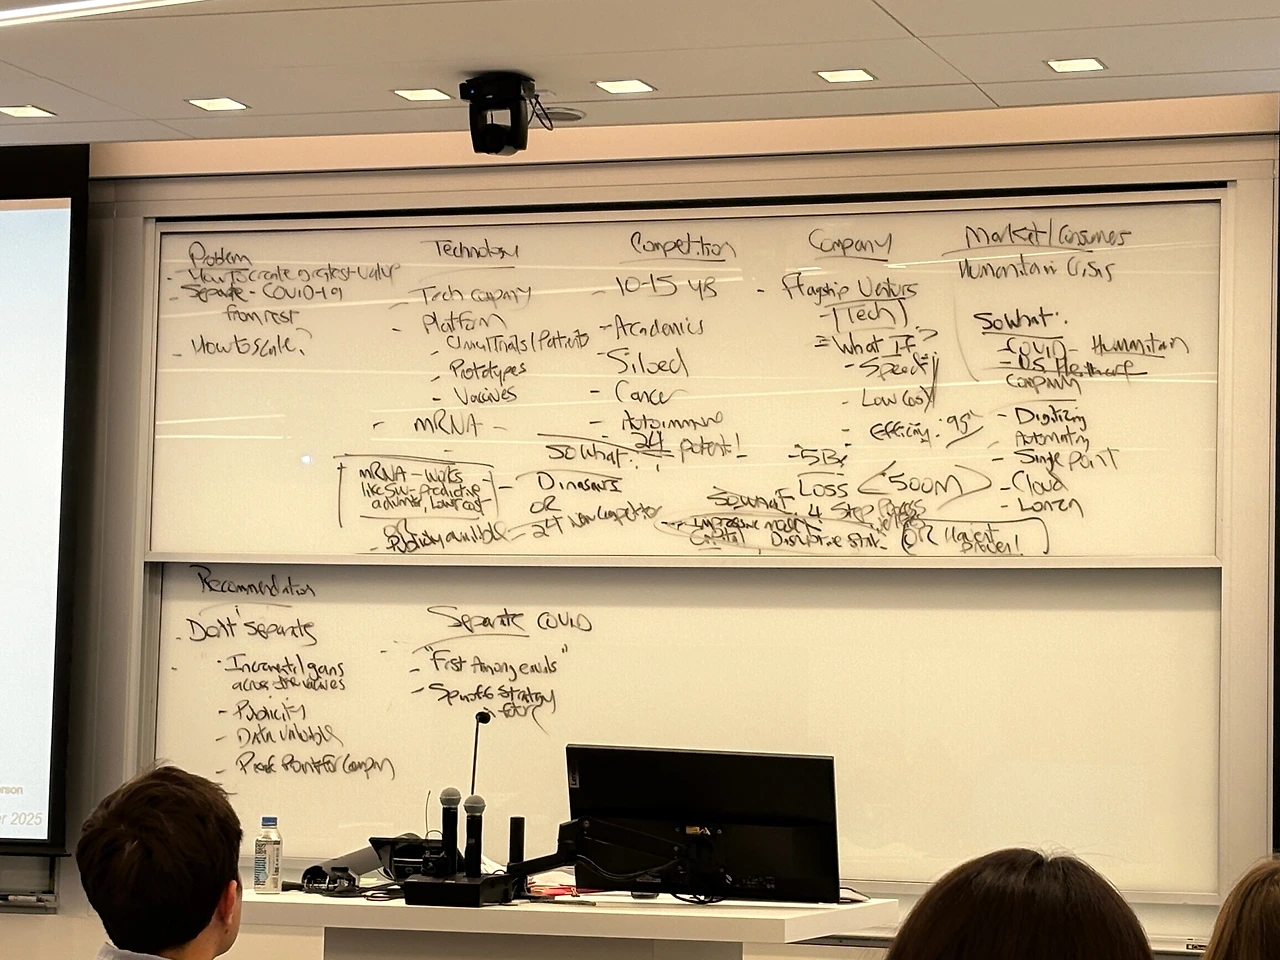 Problem
- How to create greatest value
- Separate - COVID-19
from rest
- How to scale?
Technology
- Tech company
- Platform
- Clinical Trials / Patients
- Prototypes
- Vaccines
- mRNA -
mRNA - works
like SW - predicting
Low cost
- Publicly available
Competition
- 10-15 yrs
- Academics
- Siloed
- Cancer
- Autoimmune
- 24 patent!
So what:
- Dinosaurs
OR
- 24 New Competitor
Company
- Flagship Ventures
- [Tech]
= "What If"?
- Speed
- Low Cost
- Efficacy: 95%
- 5B
Loss <500M>
So what: 4 Step Process
Impressive
Capital, Disruptive
OR Haven't
Proven!
Market / Consumers
Humanitarian Crisis
So what:
- COVID - Humanitarian
- US Healthcare
Company
- Digitizing
- Automating
- Single point
- Cloud
- Lonza
Recommendation
- Don't Separate
- Incremental gains
across the
- Publicity
- Data Valuable
- Proof Point for Company
Separate COVID
- "First Among equals"
- Spinoff Strategy
in future
erson
r 2025